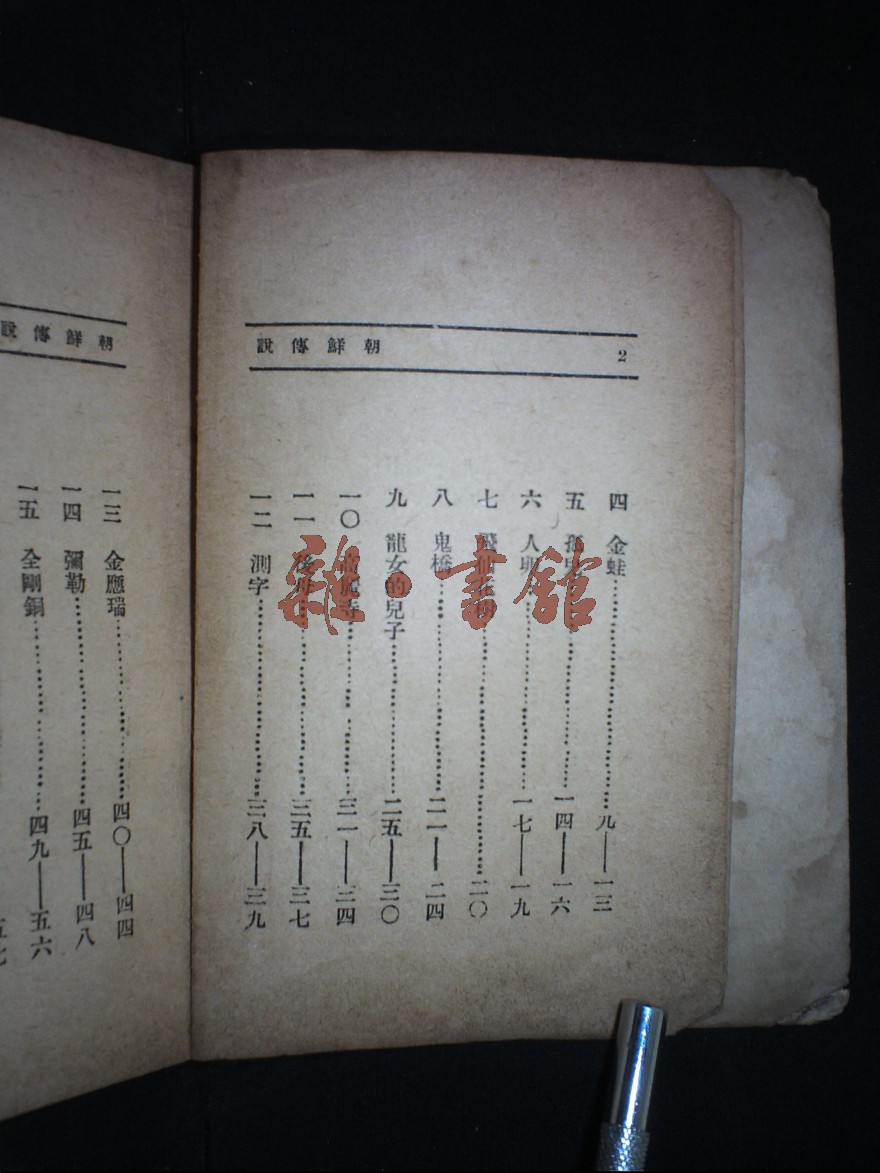 2
朝鮮傳說
四 金蛙……九——一三
五 孤……一四——一六
六 人……一七——一九
七 仙花……二〇
八 鬼橋……二一——二四
九 龍女的兒子……二五——三〇
一〇 麗寺……三一——三四
一一 後……三五——三七
一二 測字……三八——三九
朝鮮傳說
一三 金應瑞……四〇——四四
一四 彌勒……四五——四八
一五 全剛鋼……四九——五六
五七
雜·書館